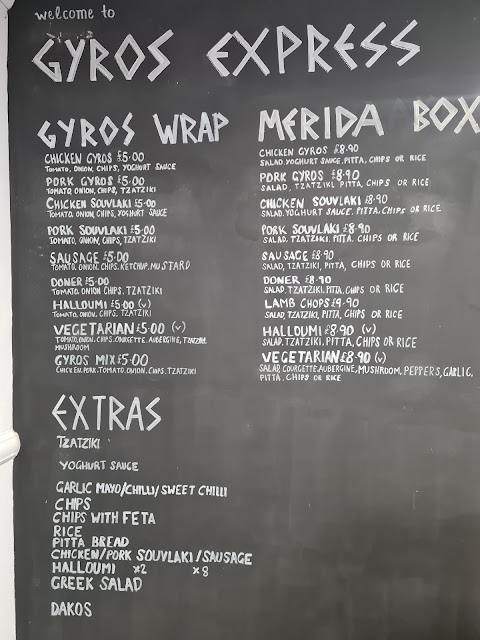 welcome to
GYROS EXPRESS
GYROS WRAP
CHICKEN GYROS £5.00
TOMATO, ONION, CHIPS, YOGHURT SAUCE
PORK GYROS £5.00
TOMATO, ONION, CHIPS, TZATZIKI
CHICKEN SOUVLAKI £5.00
TOMATO, ONION, CHIPS, YOGHURT SAUCE
PORK SOUVLAKI £5.00
TOMATO, ONION, CHIPS, TZATZIKI
SAUSAGE £5.00
TOMATO, ONION, CHIPS, KETCHUP, MUSTARD
DONER £5.00
TOMATO, ONION, CHIPS, TZATZIKI
HALLOUMI £5.00 (v)
TOMATO, ONION, CHIPS, TZATZIKI
VEGETARIAN £5.00 (v)
TOMATO, ONION, CHIPS, COURGETTE, AUBERGINE, TZATZIKI,
MUSHROOM
GYROS MIX £5.00
CHICKEN, PORK, TOMATO, ONION, CHIPS, TZATZIKI
MERIDA BOX
CHICKEN GYROS £8.90
SALAD, YOGHURT SAUCE, PITTA, CHIPS OR RICE
PORK GYROS £8.90
SALAD, TZATZIKI, PITTA, CHIPS OR RICE
CHICKEN SOUVLAKI £8.90
SALAD, YOGHURT SAUCE, PITTA, CHIPS OR RICE
PORK SOUVLAKI £8.90
SALAD, TZATZIKI, PITTA, CHIPS OR RICE
SAUSAGE £8.90
SALAD, TZATZIKI, PITTA, CHIPS OR RICE
DONER £8.90
SALAD, TZATZIKI, PITTA, CHIPS OR RICE
LAMB CHOPS £9.90
SALAD, TZATZIKI, PITTA, CHIPS OR RICE
HALLOUMI £8.90 (v)
SALAD, TZATZIKI, PITTA, CHIPS OR RICE
VEGETARIAN £8.90 (v)
SALAD, COURGETTE, AUBERGINE, MUSHROOM, PEPPERS, GARLIC,
PITTA, CHIPS OR RICE
EXTRAS
TZATZIKI
YOGHURT SAUCE
GARLIC MAYO/CHILLI/SWEET CHILLI
CHIPS
CHIPS WITH FETA
RICE
PITTA BREAD
CHICKEN/PORK SOUVLAKI/SAUSAGE
HALLOUMI x2 x8
GREEK SALAD
DAKOS